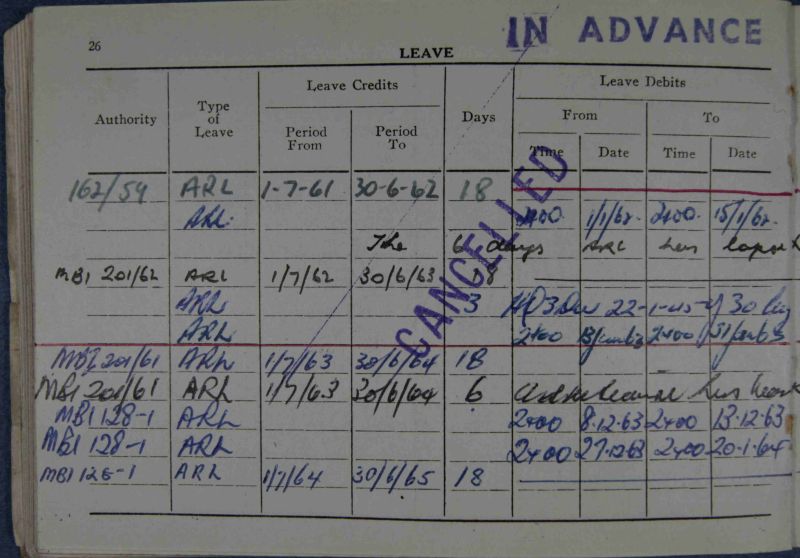 IN ADVANCE
26
LEAVE
Leave Credits
Leave Debits
Authority
Type of Leave
Period From
Period To
Days
From
To
Time
Date
Time
Date
CANCELLED
162/59 ARL 1-7-61 30-6-62 18
ARL. 2400. 1/1/62. 2400. 15/1/62.
The 6 days ARL has lapsed
MBI 201/62 ARL 1/7/62 30/6/63 18
ARL 3 22-1- 30
ARL 2400 2400
MBI 201/61 ARL 1/7/63 30/6/64 18
MBI 201/61 ARL 1/7/63 30/6/64 6 has
MBI 128-1 ARL 2400 8.12.63 2400 13.12.63
MBI 128-1 ARL 2400 27.12.63 2400 20.1.64
MBI 128-1 ARL 1/7/64 30/6/65 18